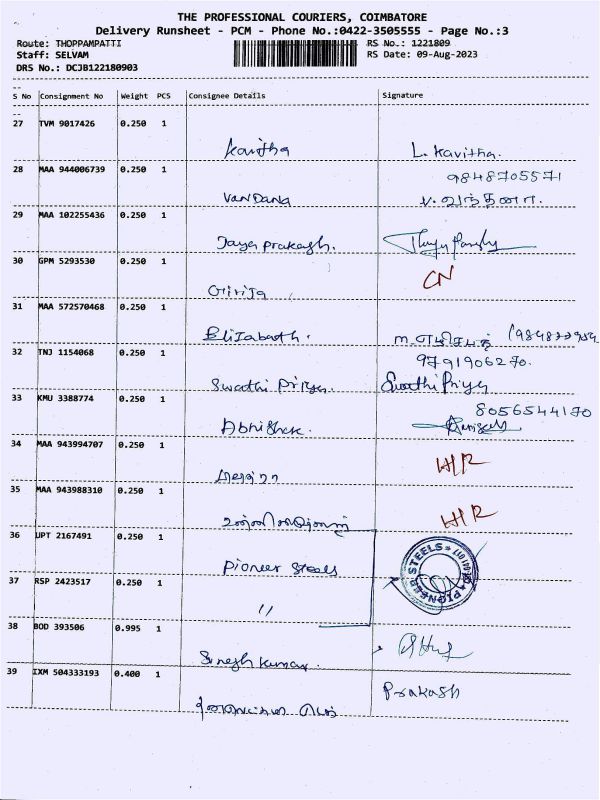 THE PROFESSIONAL COURIERS, COIMBATORE
Delivery Runsheet - PCM - Phone No.:0422-3505555 - Page No.:3
Route: THOPPAMPATTI RS No.: 1221809
Staff: SELVAM RS Date: 09-Aug-2023
DRS No.: DCJB122180903
--
S No Consignment No Weight PCS Consignee Details Signature
--
27 TVM 9017426 0.250 1
Kavitha L. Kavitha.
28 MAA 944006739 0.250 1 9848705571
VanDana v. வந்தனா.
29 MAA 102255436 0.250 1
Jaya prakash.
30 GPM 5293530 0.250 1 CN
Girija
31 MAA 572570468 0.250 1
Elizabath. m.
32 TNJ 1154068 0.250 1 9791906270.
Swathi Priya Swathi Priya
33 KMU 3388774 0.250 1 8056544170
Abhishek.
34 MAA 943994707 0.250 1 H/R
35 MAA 943988310 0.250 1 H/R
36 UPT 2167491 0.250 1
Pioneer Steels PIONEER STEELS
37 RSP 2423517 0.250 1
"
38 BOD 393506 0.995 1
Suresh kumar.
39 IXM 504333193 0.400 1 Prakash